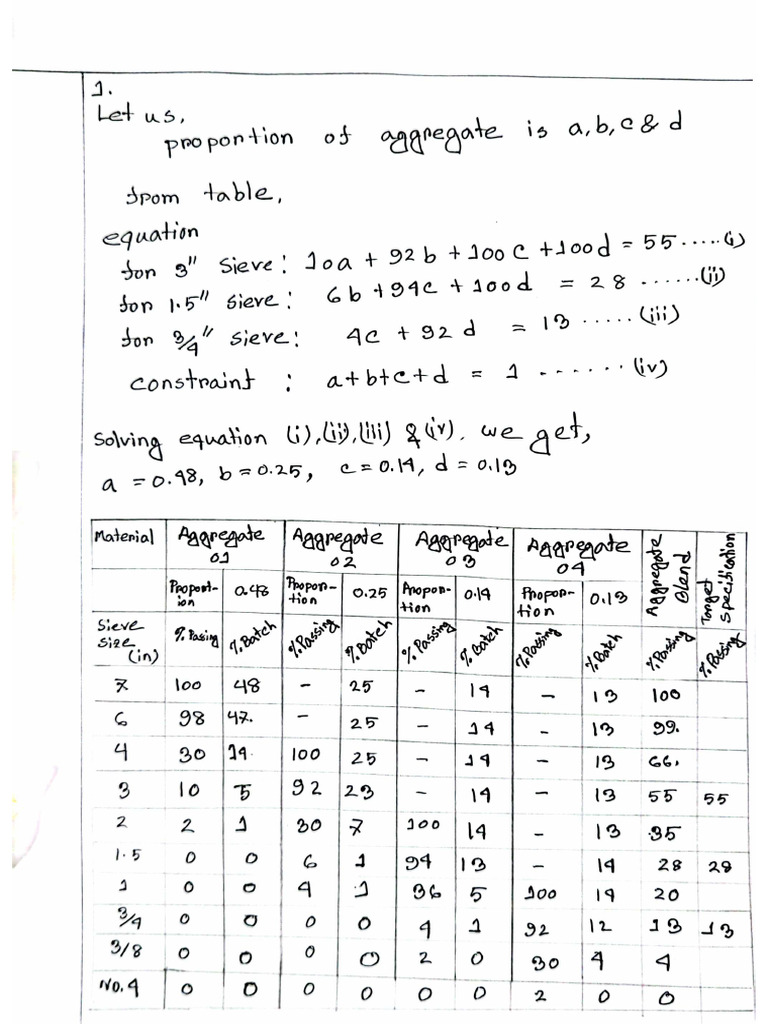 1.
Let us,
proportion of aggregate is a, b, c & d
from table,
equation
for 3" sieve: 10a + 92b + 100c + 100d = 55 .....(i)
for 1.5" sieve: 6b + 94c + 100d = 28 ......(ii)
for 3/4" sieve: 4c + 92d = 13 .....(iii)
constraint : a+b+c+d = 1 ......(iv)
Solving equation (i),(ii),(iii) & (iv). we get,
a = 0.48, b = 0.25, c = 0.14, d = 0.13
Material Aggregate 01 Aggregate 02 Aggregate 03 Aggregate 04 Aggregate Blend Target Specification
Proportion 0.48 Proportion 0.25 Proportion 0.14 Proportion 0.13
Sieve size (in) % Passing % Batch % Passing % Batch % Passing % Batch % Passing % Batch % Passing % Passing
7 100 48 - 25 - 14 - 13 100
6 98 47. - 25 - 14 - 13 99.
4 30 14. 100 25 - 14 - 13 66.
3 10 5 92 23 - 14 - 13 55 55
2 2 1 30 7 100 14 - 13 35
1.5 0 0 6 1 94 13 - 14 28 28
1 0 0 4 1 36 5 100 14 20
3/4 0 0 0 0 4 1 92 12 13 13
3/8 0 0 0 0 2 0 30 4 4
No.4 0 0 0 0 0 0 2 0 0